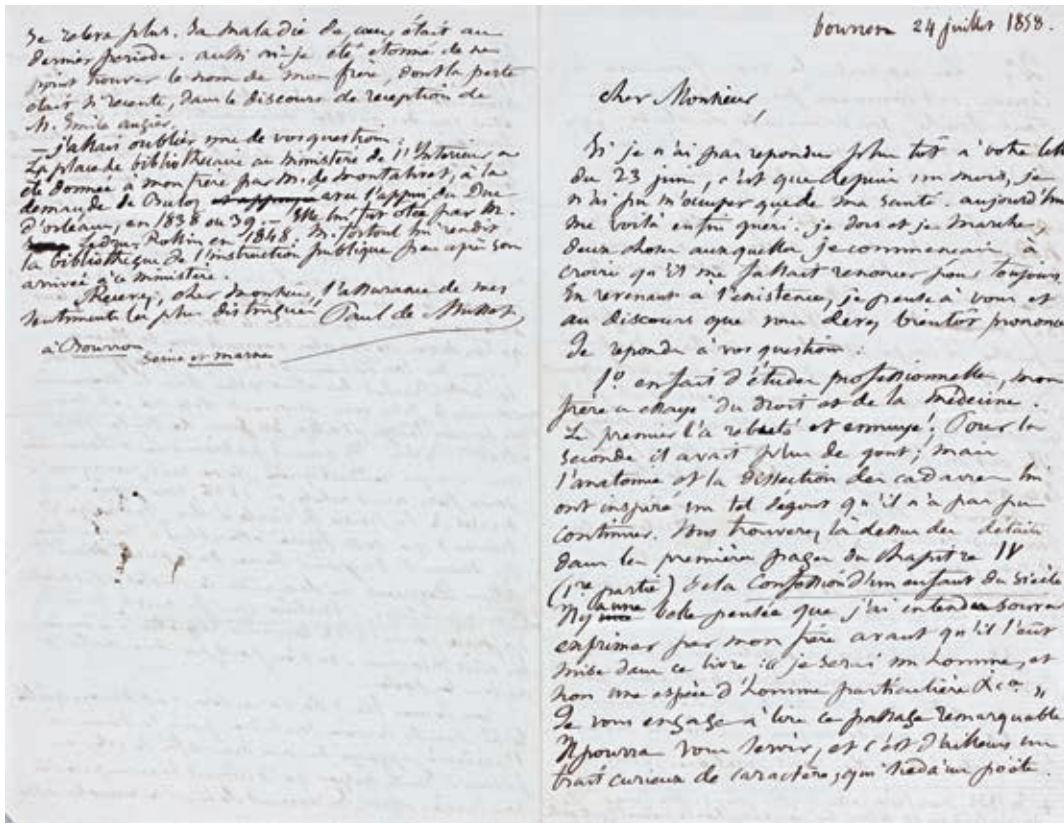 se releva plus. Sa maladie de coeur était au
dernier période. aussi ai-je été étonné de ne
point trouver le nom de mon frère, dont la perte
était si recente, dans le discours de reception de
M. Emile augier
— j'allais oublier une de vos questions :
La place de bibliothécaire au ministère de l'Interieur a
été donnée à mon frère par M. de montalivet, à la
demande de Buloz avec l'appui du Duc
d'orléans, en 1838 ou 39. — Elle lui fut otée par M.
Ledru-Rollin en 1848. M. fortoul lui rendit
la bibliothèque de l'instruction publique peu après son
arrivée à ce ministère.
Recevez, cher monsieur, l'assurance de mes
sentiments les plus distingués Paul de Musset
à Bourron
Seine et marne
bourron 24 juillet 1858.
cher Monsieur
Si je n'ai pas repondu plus tôt à votre lett
du 23 juin, c'est que depuis un mois, je
n'ai pu m'occuper que de ma santé. aujourd'hu
me voilà enfin guéri. je dors et je marche
deux choses auxquelles je commençais à
croire qu'il me fallait renoncer pour toujours
En revenant à l'existence, je pense à vous et
au discours que vous devez bientôt prononc
Je reponds à vos questions :
1º en fait d'études professionnelles, mon
frère a essayé du droit et de la médecine.
Le premier l'a rebuté et ennuyé. Pour la
seconde il avait plus de gout ; mais
l'anatomie et la dissection des cadavres lui
ont inspiré un tel dégout qu'il n'a pas pu
continuer. Vous trouverez là dessus des détails
dans les premières pages du chapitre IV
(1re partie) de la Confession d'un enfant du siècle
Il y a là une belle pensée que j'ai entendu souvent
exprimer par mon frère avant qu'il l'eut
mise dans ce livre : « je serai un homme, et
non une espèce d'homme particulière &ca. »
Je vous engage à lire ce passage remarquable
Il pourra vous servir, et c'est d'ailleurs un
trait curieux de caractère, qui d'un poète.